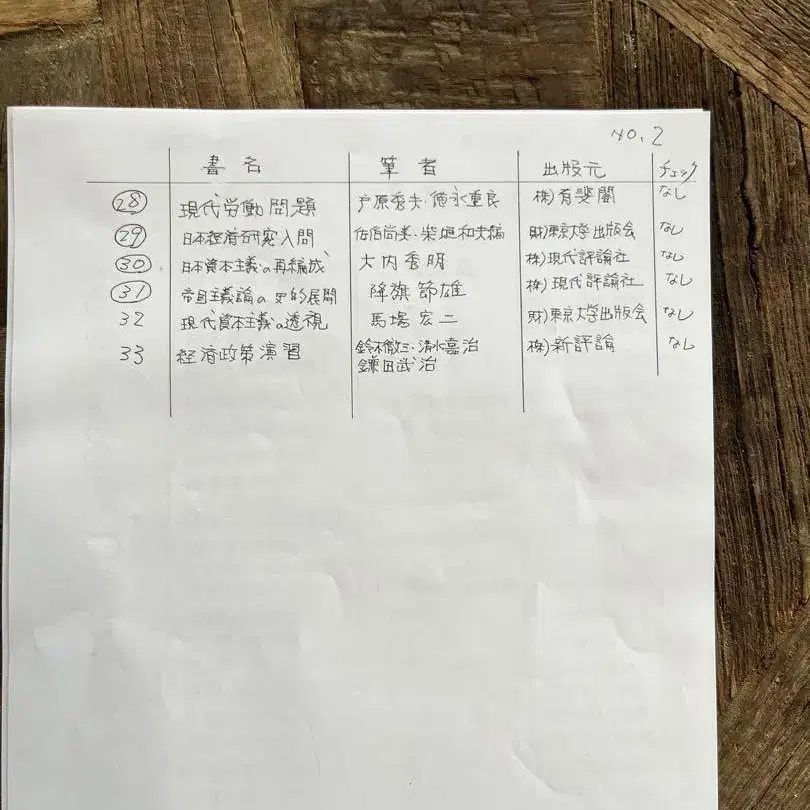 NO. 2
書名 筆者 出版元 チェック
㉘ 現代労働問題 戸原秀夫・徳永重良 株)有斐閣 なし
㉙ 日本経済研究入門 佐伯尚美・柴垣和夫編 財)東京大学出版会 なし
㉚ 日本資本主義の再編成 大内秀明 株)現代評論社 なし
㉛ 帝国主義論の史的展開 降旗節雄 株)現代評論社 なし
32 現代資本主義の透視 馬場宏二 財)東京大学出版会 なし
33 経済政策演習 鈴木敬三・清水嘉治 株)新評論 なし
鎌田武治